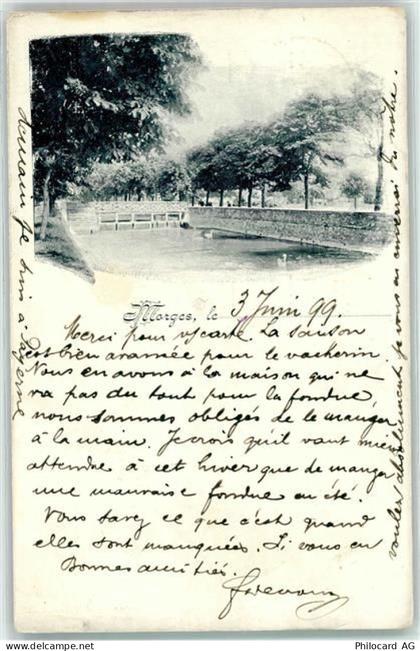 Morges, le 3 Juin 99.
Merci pour vos carte. La saison
est bien avancée pour le vacherin
Nous en avons à la maison qui ne
va pas du tout pour la fondue,
nous sommes obligés de le manger
à la main. Je crois qu'il vaut mieux
attendre à cet hiver que de manger
une mauvaise fondue en été.
Vous savez ce que c'est quand
elles sont manquées. Si vous en
voulez absolument je vous en enverrai du nôtre.
Bonnes amitiés,
je suis à Payerne
Philocard AG